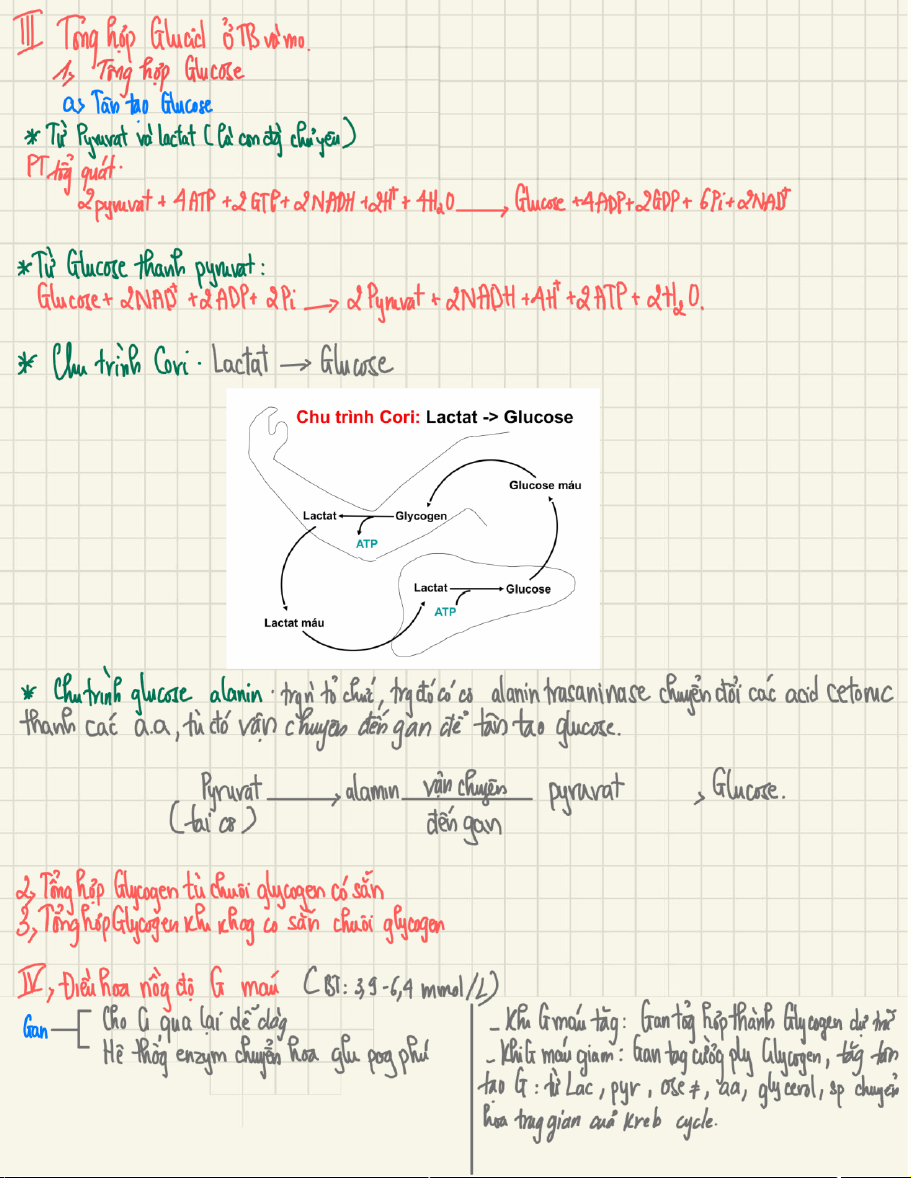 III Tổng hợp Glucid ở TB và mo.
1, Tổng hợp Glucose
a, Tân tạo Glucose
* Từ Pyruvat và lactat (là con đg chủ yếu)
PT tổg quát.
2 pyruvat + 4ATP + 2GTP + 2NADH + 2H⁺ + 4H₂O ⟶ Glucose + 4ADP + 2GDP + 6Pi + 2NAD⁺
* Từ Glucose thanh pyruvat:
Glucose + 2NAD⁺ + 2ADP + 2Pi ⟶ 2 Pyruvat + 2NADH + 4H⁺ + 2ATP + 2H₂O.
* Chu trình Cori. Lactat → Glucose
Chu trình Cori: Lactat -> Glucose
Glucose máu
Lactat Glycogen
ATP
Lactat Glucose
ATP
Lactat máu
* Chu trình glucose alanin. alanin trasaninase chuyển đổi các acid cetonic
thanh các a.a, từ đó vận chuyển đến gan để tân tạo glucose.
Pyruvat ⟶ alamin vận chuyển pyruvat , Glucose.
(tại cơ) đến gan
2, Tổng hợp Glycogen từ chuỗi glycogen có sẵn
3, Tổng hợp Glycogen khi khog co sẵn chuỗi glycogen
IV, Điều hoa nồg độ G máu (BT: 3,9 - 6,4 mmol/L)
Gan
Cho G qua lại dễ dàg
Hệ thốg enzym chuyển hoa glu pog phú
- Khi G máu tăg: Gan tổg hợp thành Glycogen dự trữ
- Khi G máu giảm: Gan tag cườg ply Glycogen, tăg tân
tạo G: từ Lac, pyr, ose ≠, aa, glycerol, sp chuyển
hoa trug gian cuả Kreb cycle.